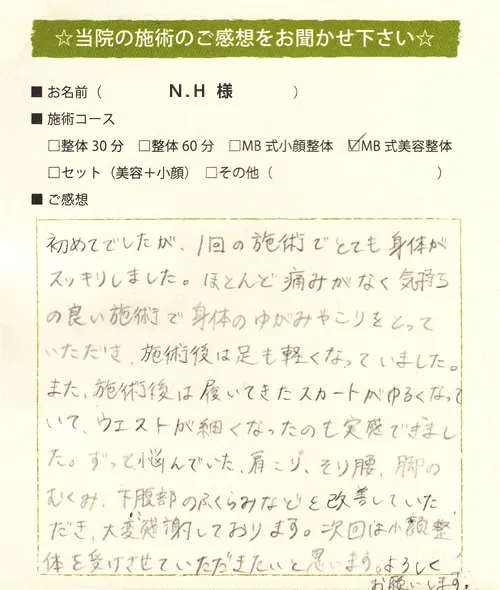 ☆当院の施術のご感想をお聞かせ下さい☆
■ お名前（ N.H 様 ）
■ 施術コース
□整体30分 □整体60分 □MB式小顔整体 ☑MB式美容整体
□セット（美容＋小顔） □その他（ ）
■ ご感想
初めてでしたが、1回の施術でとても身体が
スッキリしました。ほとんど痛みがなく気持ち
の良い施術で身体のゆがみやこりをとって
いただき、施術後は足も軽くなっていました。
また、施術後は履いてきたスカートがゆるくなって
いて、ウエストが細くなったのも実感できまし
た。ずっと悩んでいた、肩こり、そり腰、脚の
むくみ、下腹部のふくらみなどを改善していた
だき、大変感謝しております。次回は小顔整
体を受けさせていただきたいと思います。よろしく
お願いします。